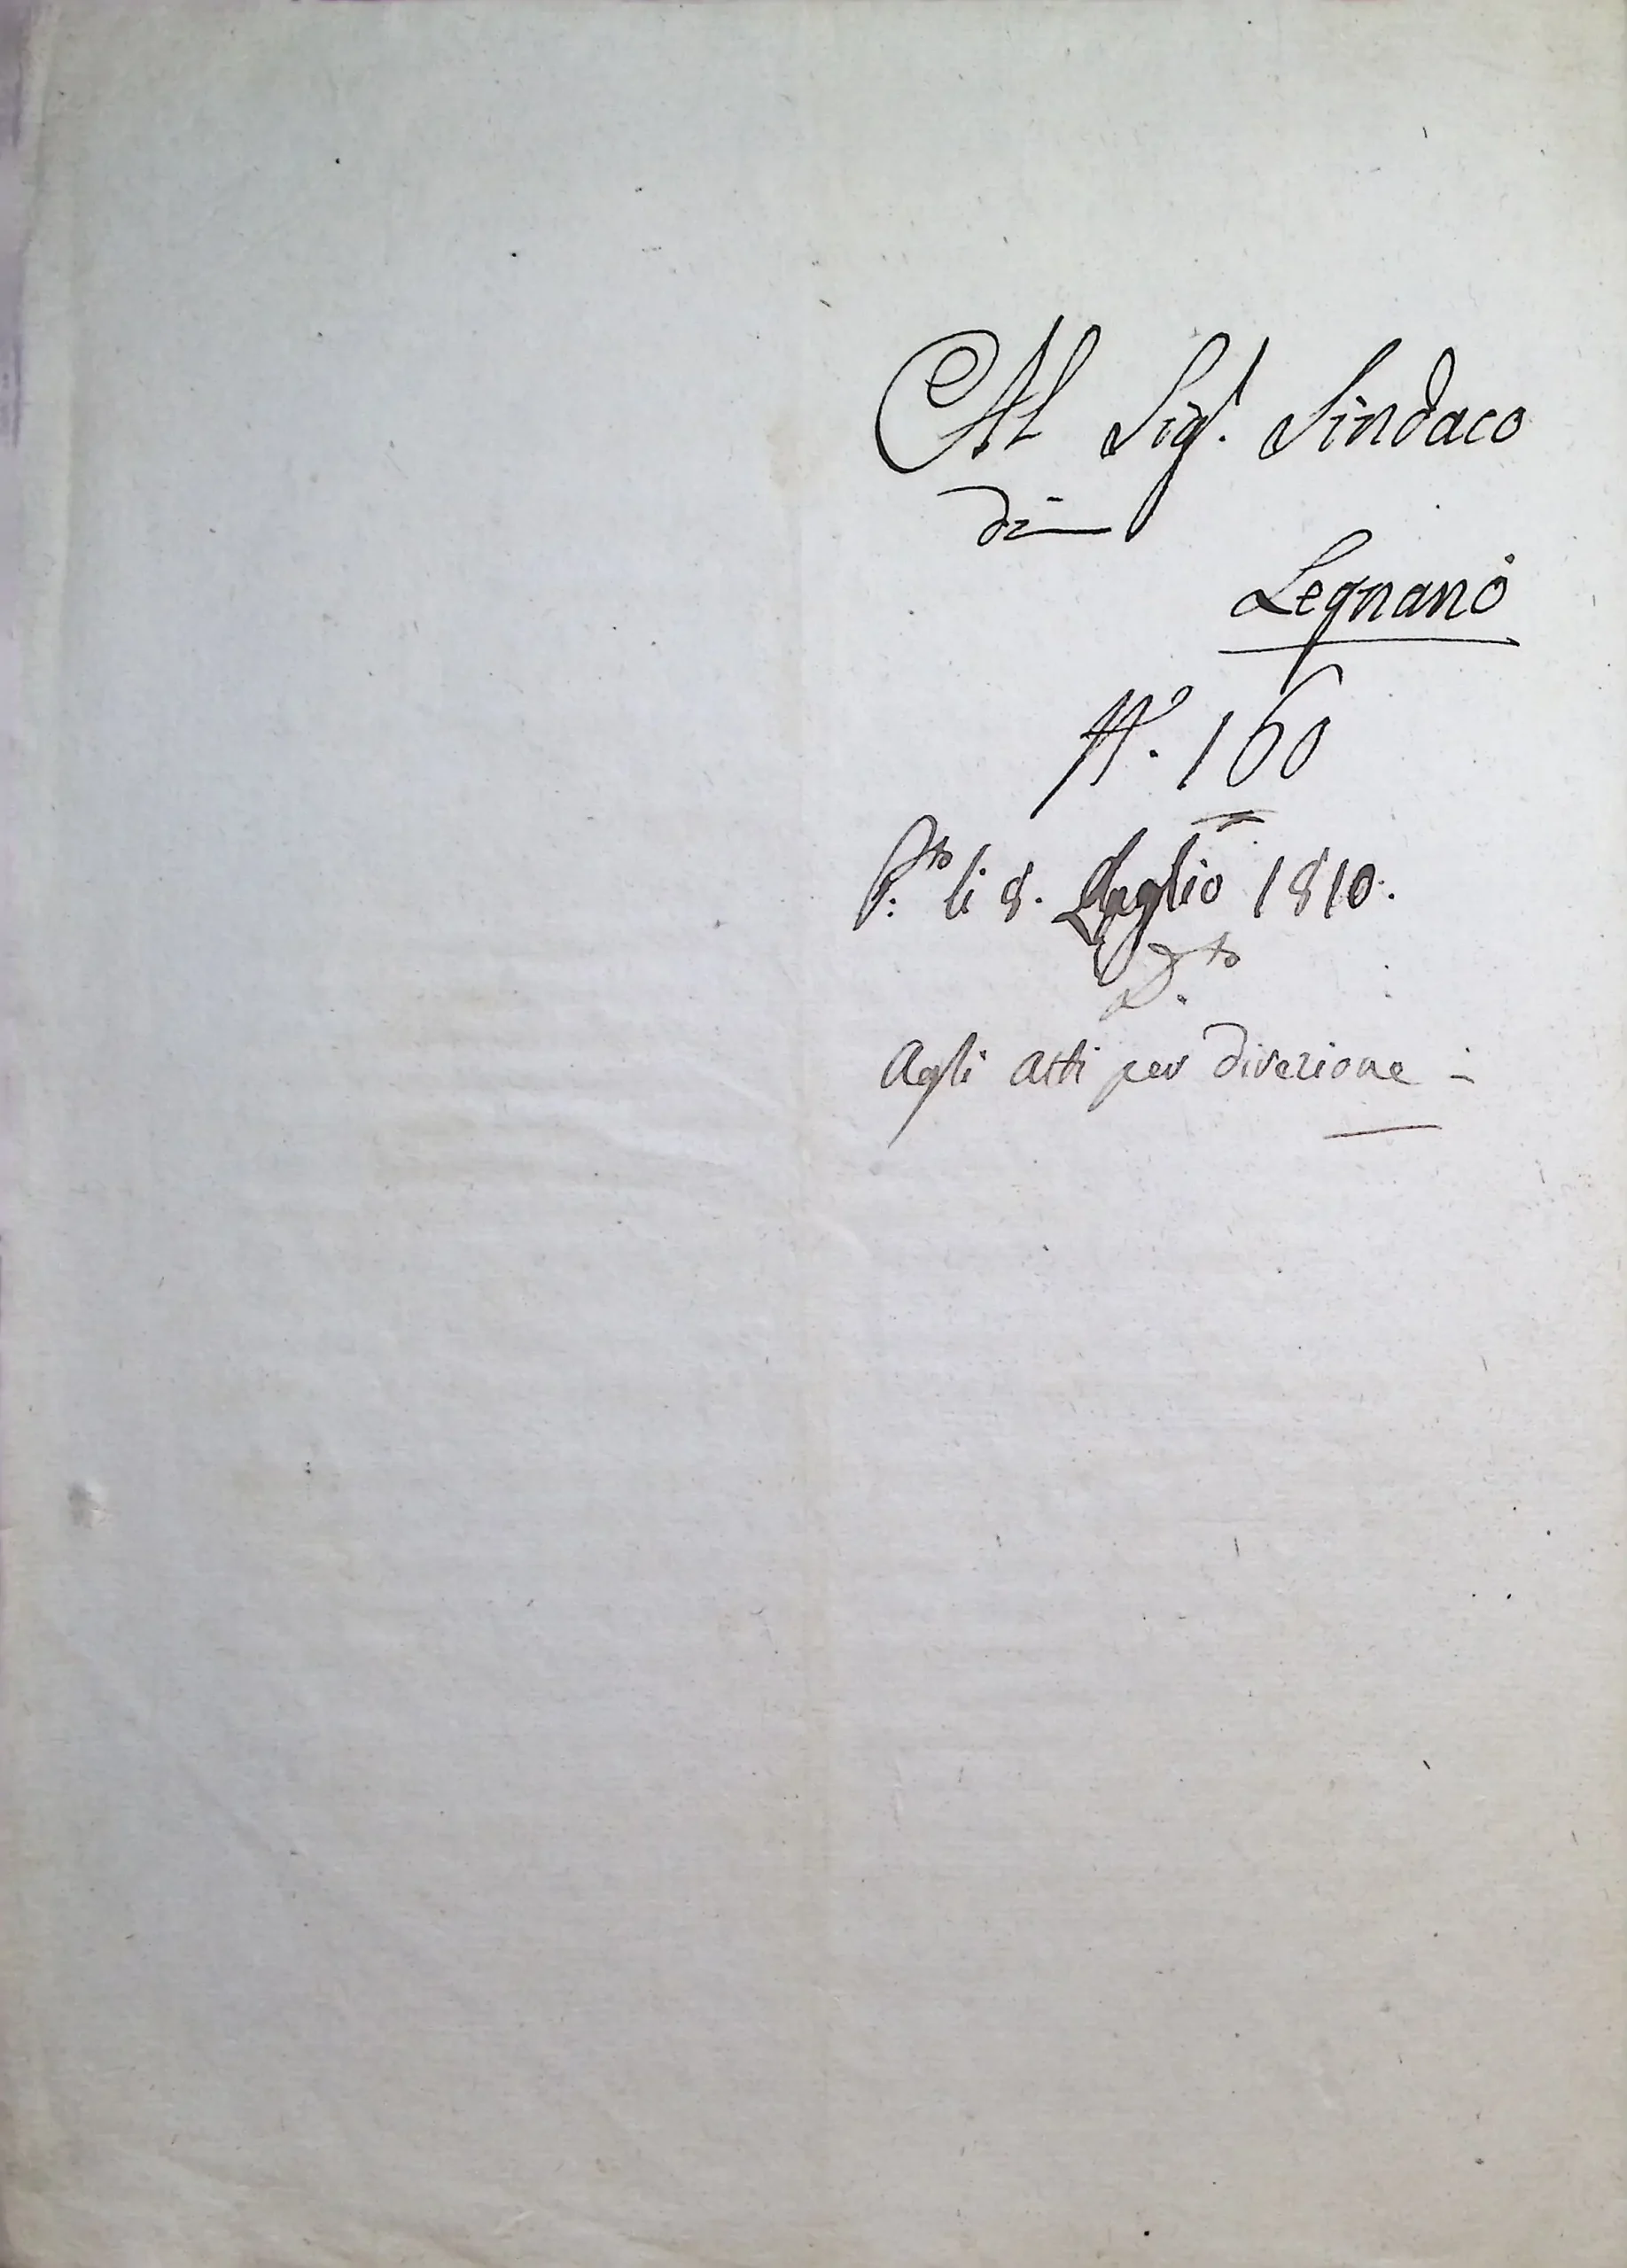 Al Sig.r Sindaco
di
Legnano
N.o 160
P.to li 8. Luglio 1810.
D.to
Agli atti per direzione -